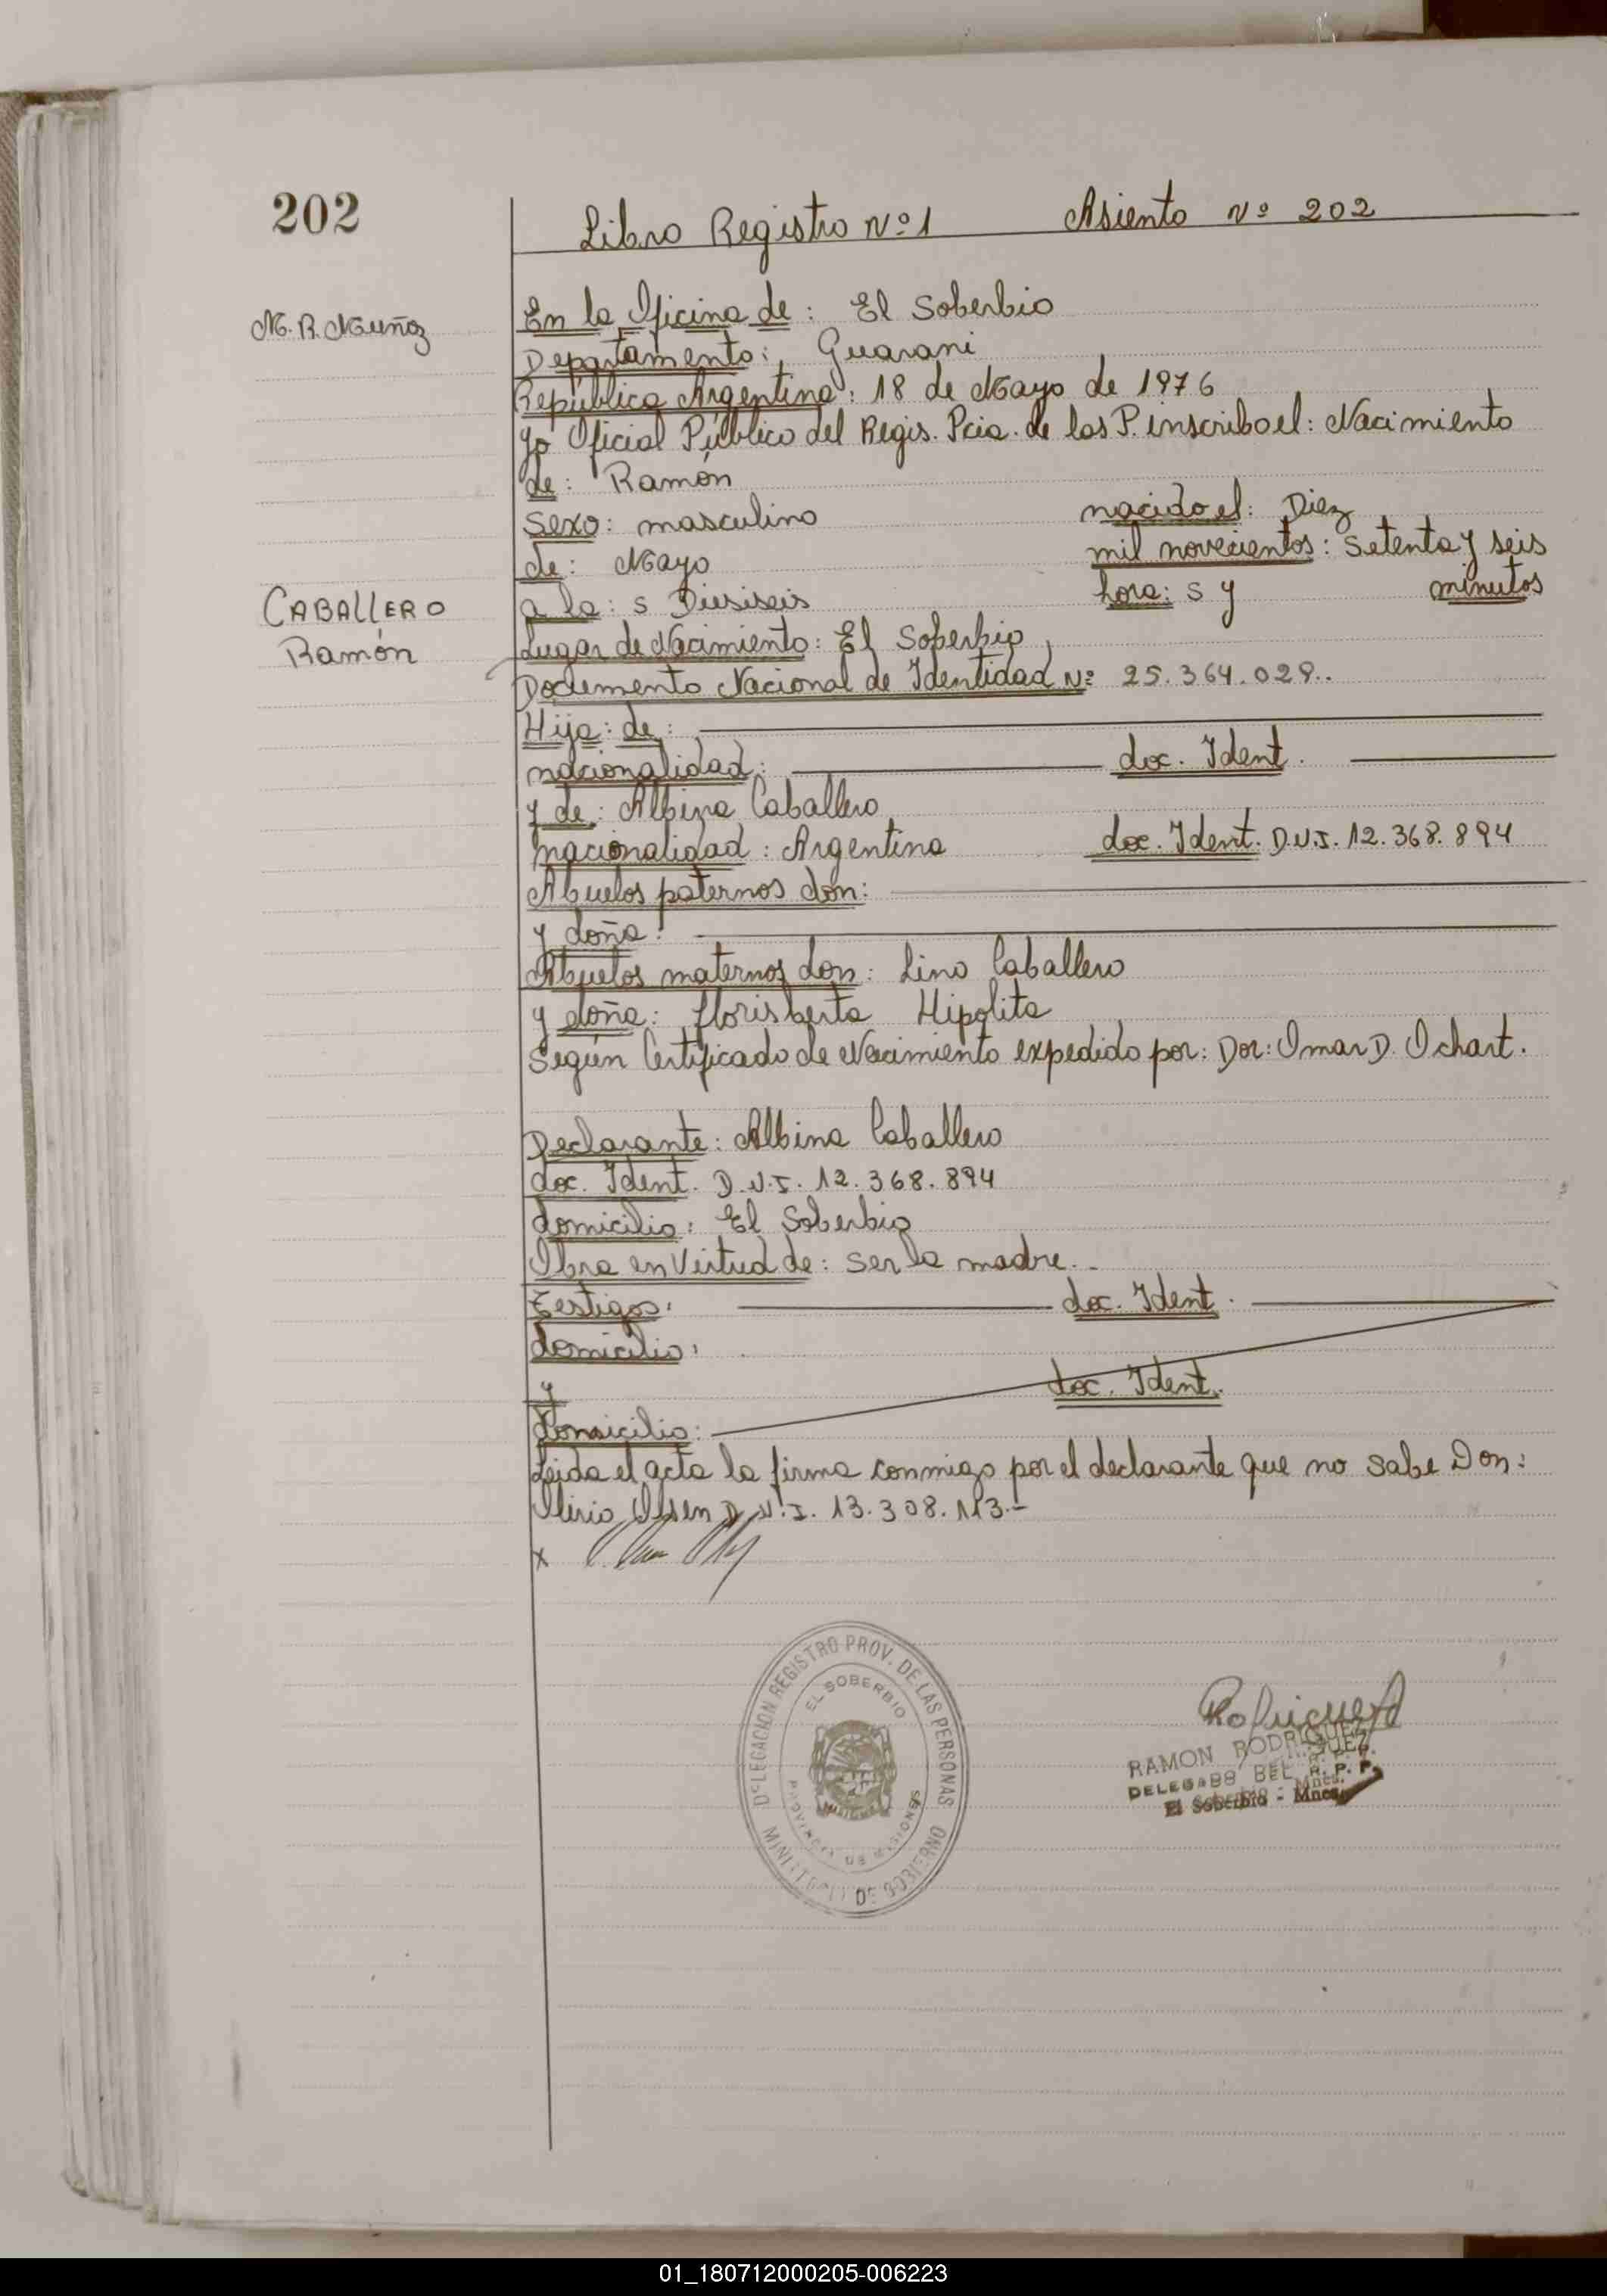 202
Libro Registro Nº 1 Asiento Nº 202
M. R. Muñoz
En la Oficina de: El Soberbio
Departamento: Guarani
República Argentina: 18 de Mayo de 1976
yo Oficial Público del Regis. Pcia. de las P. inscribo el: Nacimiento
de: Ramón
sexo: masculino nacido el: Diez
de: Mayo mil novecientos: Setenta y seis
CABALLERO
Ramón
a la: s Diesiseis hora: s y minutos
Lugar de Nacimiento: El Soberbio
Documento Nacional de Identidad Nº 25.364.028..
Hijo: de:
nacionalidad: doc. Ident.
y de: Albina Caballero
nacionalidad: Argentina doc. Ident. D.N.I. 12.368.894
Abuelos paternos don:
y doña:
Abuelos maternos don: Lino Caballero
y doña: Florisberta Hipolita
Según Certificado de Nacimiento expedido por: Dor: Omar D. Ochart.
Declarante: Albina Caballero
doc. Ident. D.N.I. 12.368.894
domicilio: El Soberbio
Obra en Virtud de: ser la madre..
Testigos: doc. Ident.
domicilio:
y doc. Ident.
Domicilio:
Leida el acta la firma conmigo por el declarante que no sabe Don:
Olirio Olsen D.N.I. 13.308.113.-
x
DELEGACION REGISTRO PROV. DE LAS PERSONAS
EL SOBERBIO
PROVINCIA DE MISIONES
MINISTERIO DE GOBIERNO
Rodriguez
RAMON RODRIGUEZ
DELEGADO DEL R. P. P.
El Soberbio - Mnes.
01_180712000205-006223